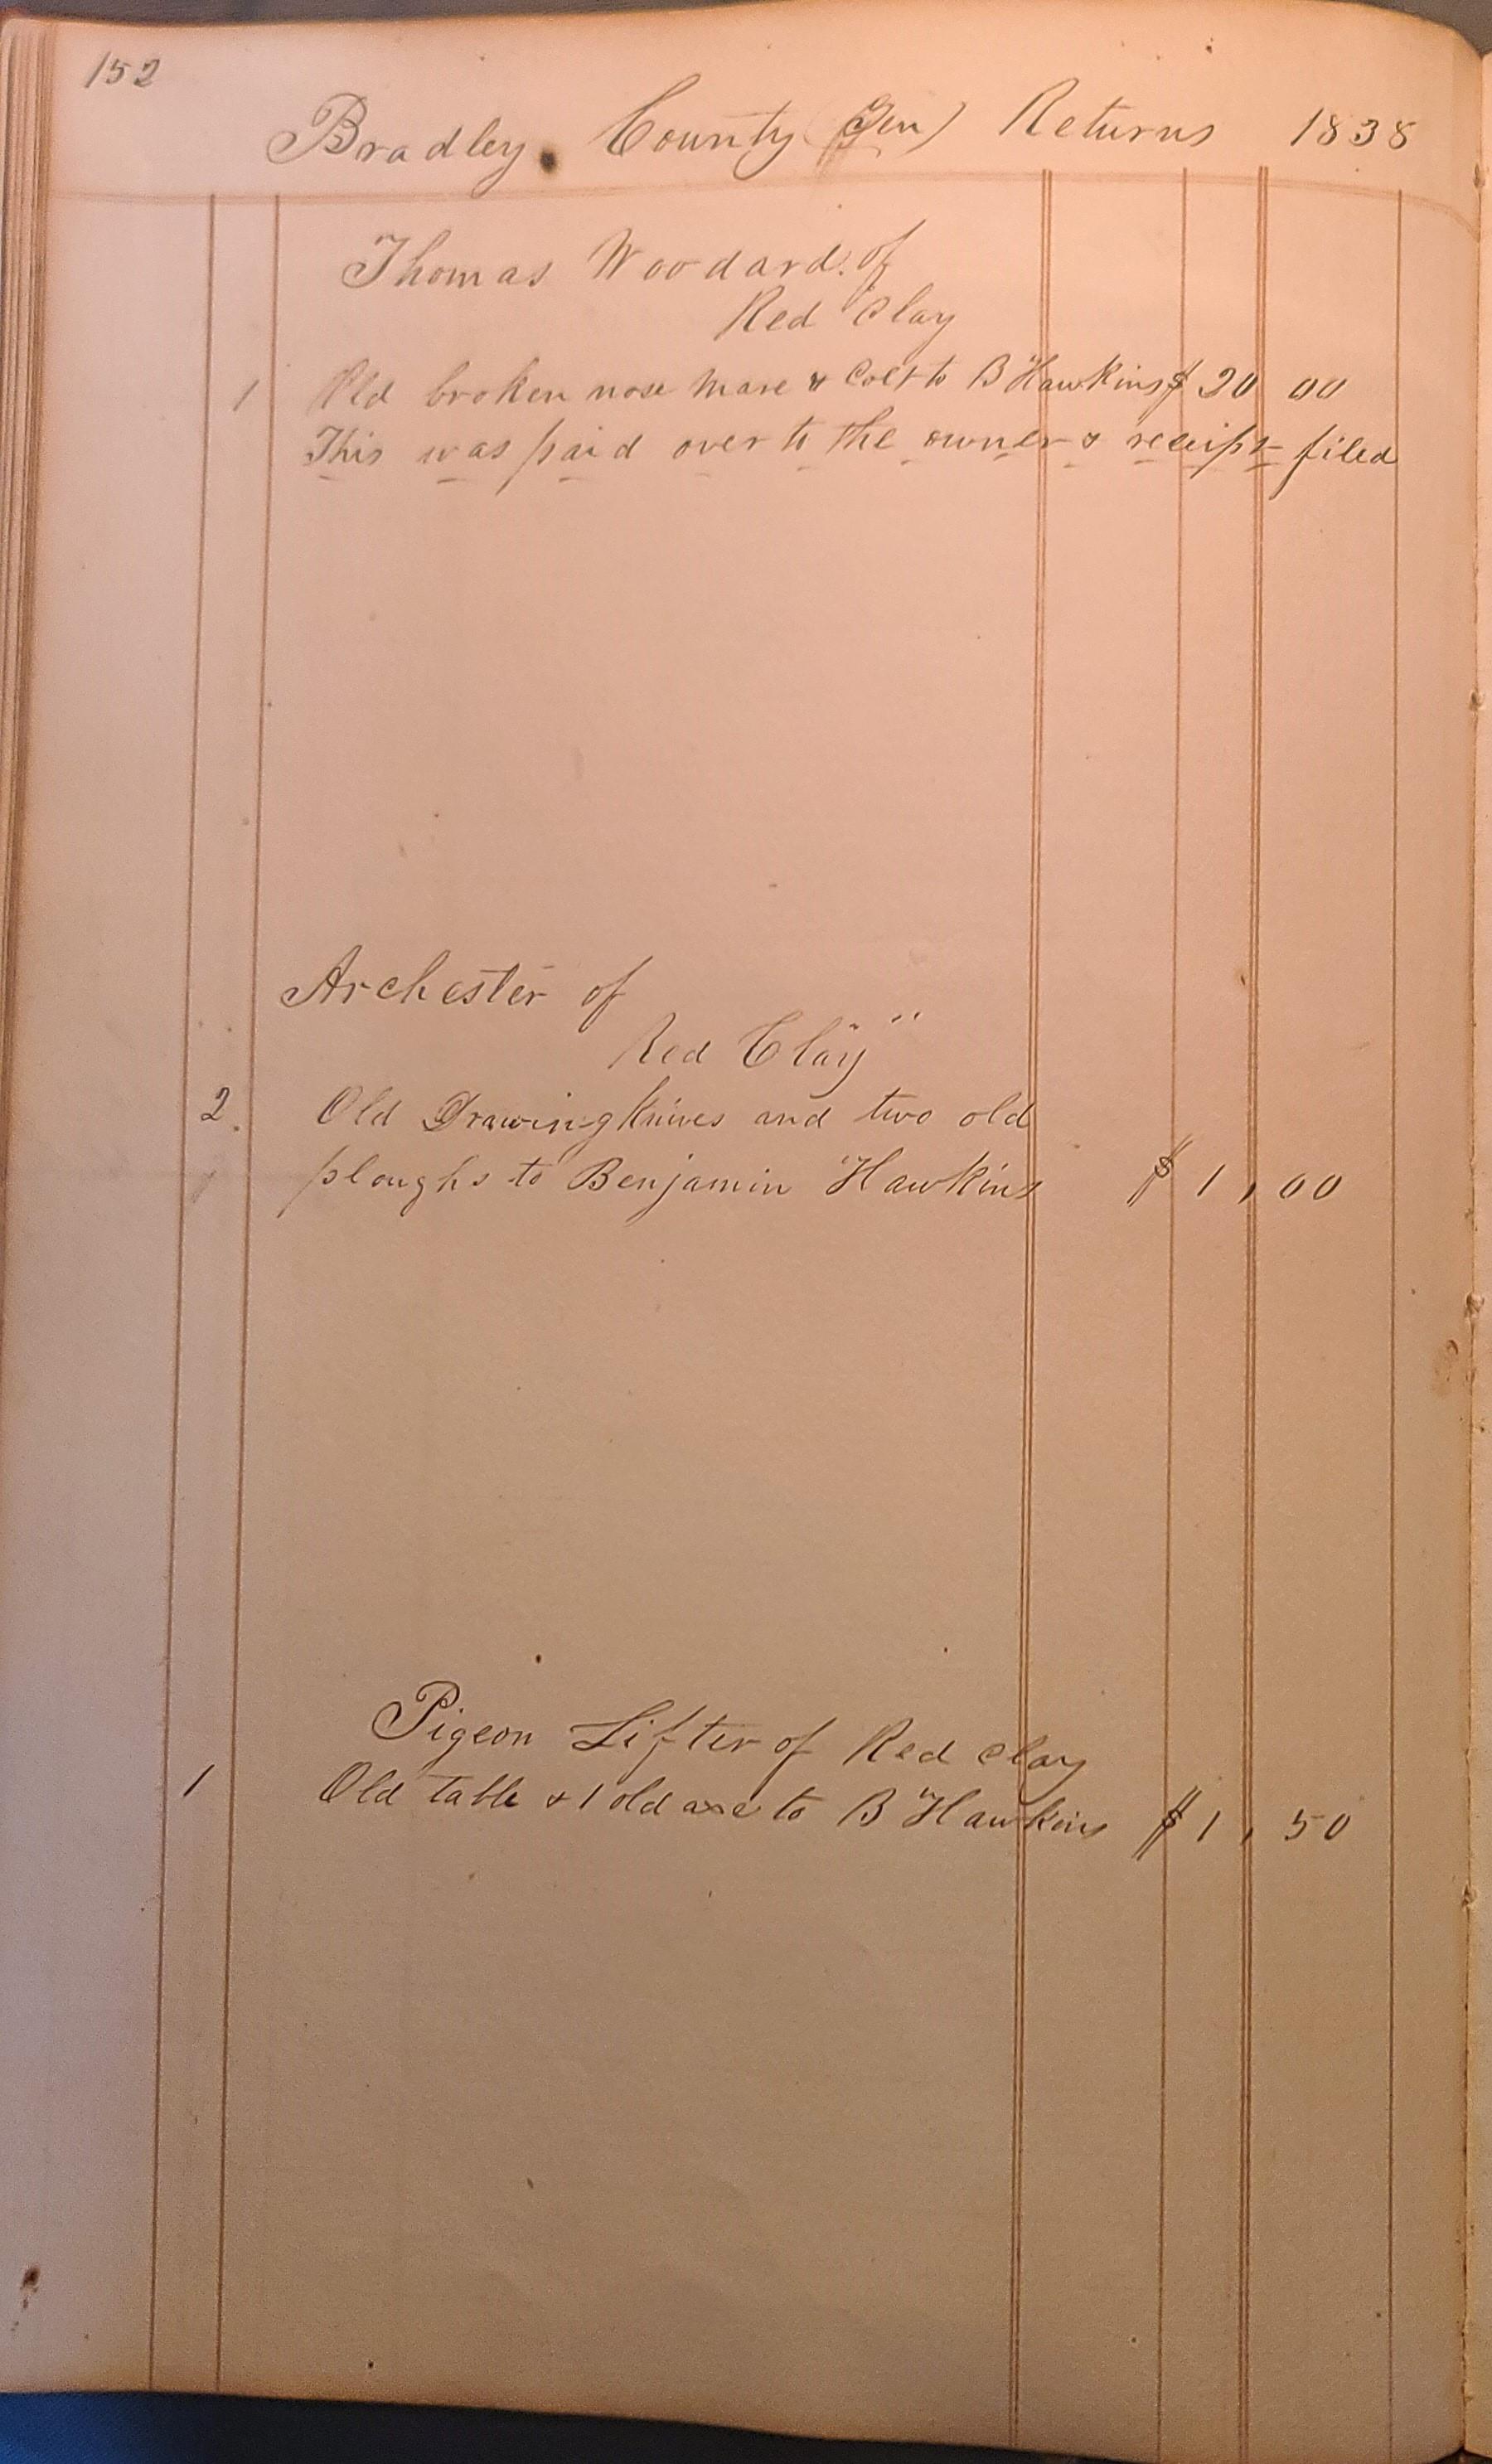 152
Bradley County (Ten) Returns 1838
Thomas Woodard of
Red Clay
1 Old broken nose mare & Colt to B Hawkins $ 20 00
This was paid over to the owner & receipt filed
Archester of
Red Clay
2. Old Drawing Knives and two old
ploughs to Benjamin Hawkins $ 1, 00
Pigeon Lifter of Red Clay
1 Old table & 1 old axe to B Hawkins $ 1, 50